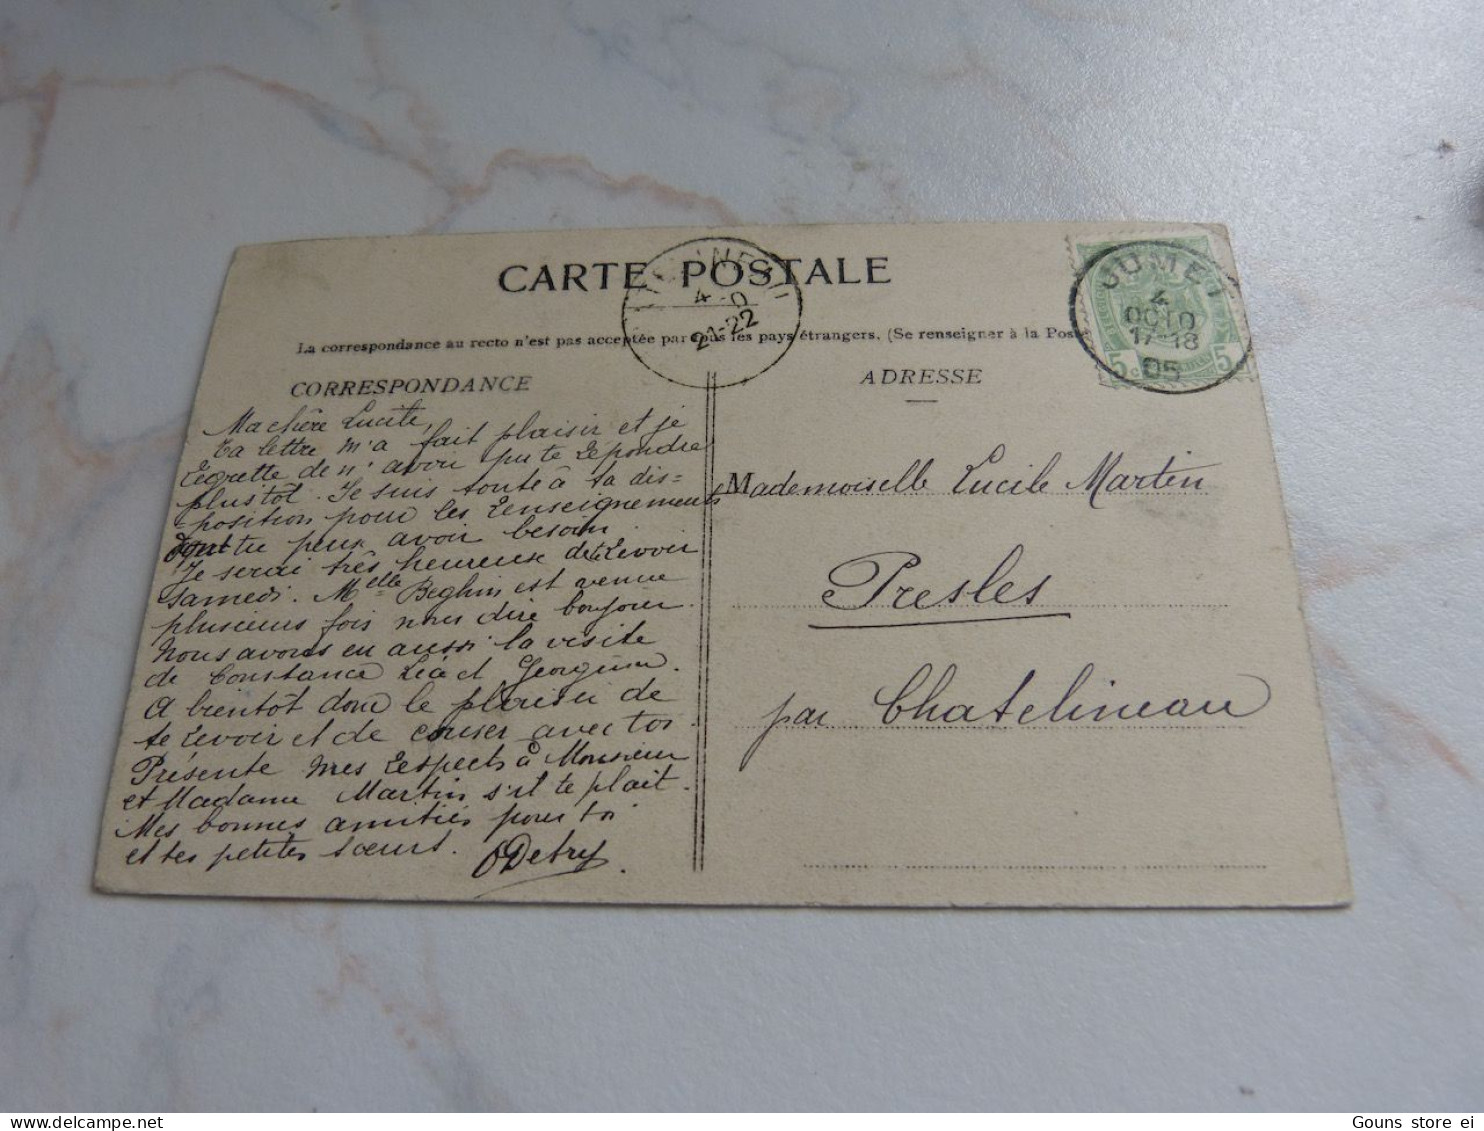 CARTE POSTALE
4-0
21-22
JUMET
4
OCTO
17-18
05
5c
5c
La correspondance au recto n'est pas acceptée par tous les pays étrangers. (Se renseigner à la Poste
CORRESPONDANCE
Ma chère Lucile,
Ta lettre m'a fait plaisir et je
regrette de n'avoir pu te répondre
plus tôt. Je suis toute à ta dis=
=position pour les renseignements
dont tu peux avoir besoin.
Je serai très heureuse de te revoir
samedi. Melle Beghin est venue
plusieurs fois nous dire bonjour.
Nous avons eu aussi la visite
de Constance Léa et Georgina.
A bientôt donc le plaisir de
te revoir et de causer avec toi.
Présente mes respects à Monsieur
et Madame Martin s'il te plait.
Mes bonnes amitiés pour toi
et tes petites sœurs. ODetry.
ADRESSE
Mademoiselle Lucile Martin
Presles
par Chatelineau
Gouns store ei